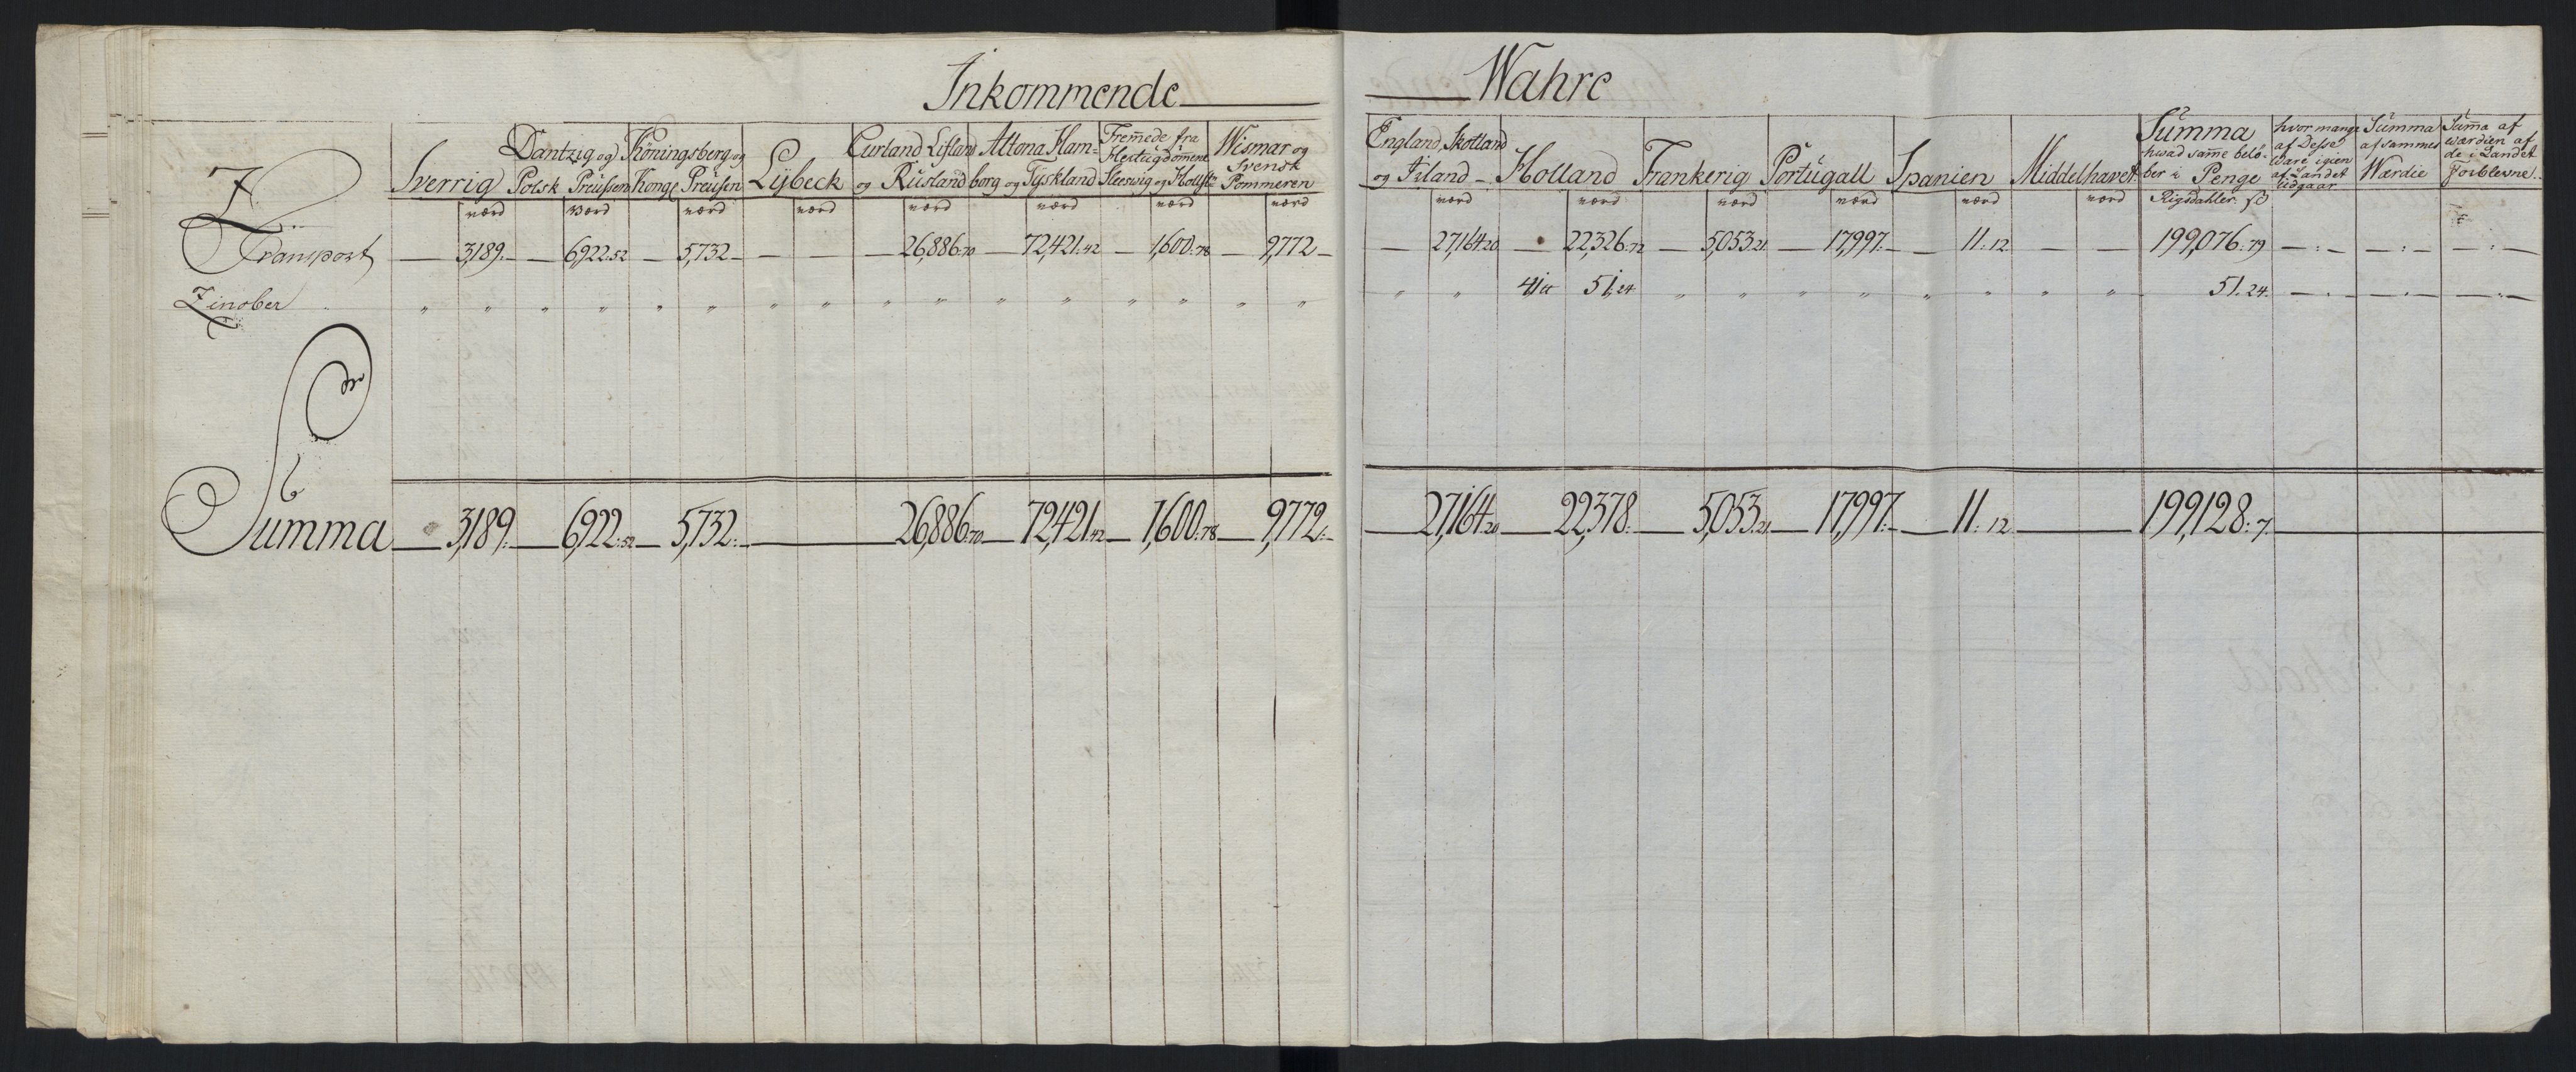 Inkommende Wahre
Z
Sverrig
Dantzig og Polsk Preussen
Köningsberg og Konge Preusen
Lÿbeck
Curland Lifland og Rusland
Altona Hamborg og Tÿskland
Fremede fra Hertugdömene Sleswig og Hollst:
Wismar og Svensk Pommeren
England, Skotland og Irland
Holland
Frankerig
Portugall
Spanien
Middelhavet
Summa hwad samme beløber i Penge
hvor mange af Desse Ware igien af Landet udgaar
Summa af sammes Wærdie
Summa af Wardien af de i Landet Forblevne
værd værd værd værd værd værd værd værd værd værd værd værd værd værd Rigsdahler ß
Transport — 3,189. — 6,922.52 — 5,732 — — — — 26,886.70 — 72,421.42 — 1,600.78 — 9,772 — — 27,164.20 — 22,326.72 — 5,053.21 — 17,997. — 11.12. — — 199,076.79 — — —
Zinober " " " " " " " " " " " " " " " " " " 41 ℔ 51.24 " " " " " " " " 51.24. — — —
Summa — 3,189. — 6,922.52 — 5,732. — 26,886.70 — 72,421.42 — 1,600.78 — 9,772. — 27,164.20 — 22,378. — 5,053.21 — 17,997. — 11.12. — 199,128.7. —